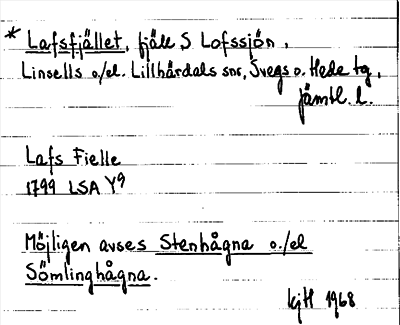 * Lafsfjället, fjäll S Lofssjön,
Linsells o./el. Lillhärdals snr, Svegs o. Hede tg,
jämtl. l.
Lafs Fielle
1799 LSA Y9
Möjligen avses Stenhågna o./el
Sömlinghågna.
kjH 1968